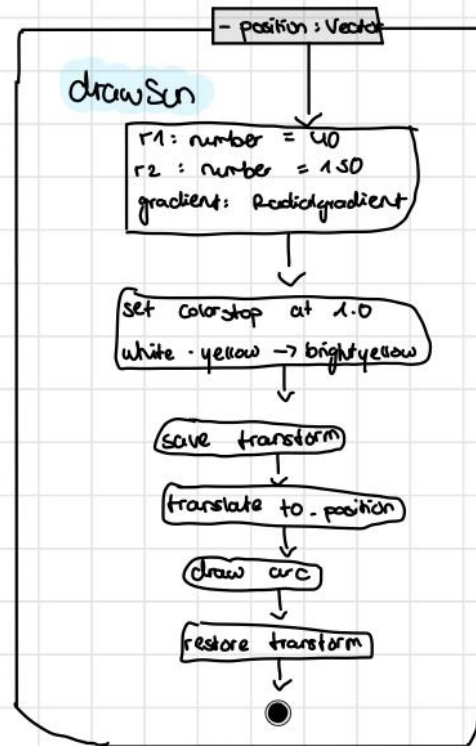 - position : Vector
drawSun
r1 : number = 40
r2 : number = 150
gradient: Radialgradient
set colorstop at 1.0
white - yellow -> brightyellow
save transform
translate to _position
draw arc
restore transform